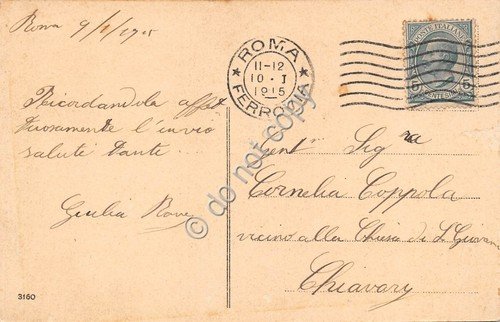 Roma 9/1/1915
Ricordandola affet
tuosamente l'invio
saluti tante
Giulia
3160
ROMA
11-12
10·I
1915
FERROVIA
POSTE ITALIANE
5 5
Gent. Sigra
Cornelia Coppola
vicino alla Chiesa di S. Giovan
Chiavary
© do not copy